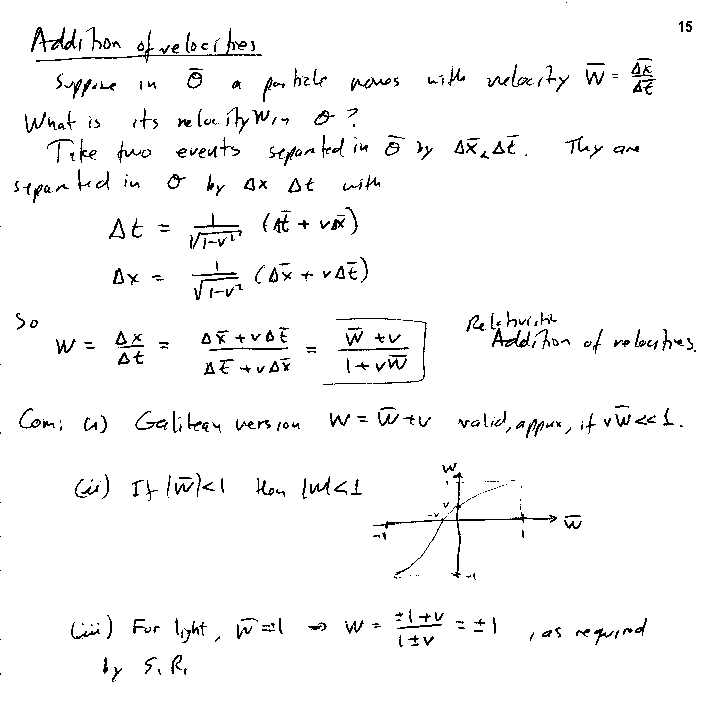 15
Addition of velocities
Suppose in Ō a particle moves with velocity W̄ = Δx̄/Δt̄
What is its velocity W in O ?
Take two events separated in Ō by Δx̄, Δt̄. They are
separated in O by Δx Δt with
Δt = 1/√(1-v²) (Δt̄ + vΔx̄)
Δx = 1/√(1-v²) (Δx̄ + vΔt̄)
So
W = Δx/Δt = (Δx̄ + vΔt̄)/(Δt̄ + vΔx̄) = (W̄ + v)/(1 + vW̄)
Relativistic
Addition of velocities.
Com: (i) Galilean version W = W̄ + v valid, approx, if vW̄ << 1.
(ii) If |W̄| < 1 then |W| < 1
W
1
v
-v
-1
1
W̄
-1
(iii) For light, W̄ = ±1 → W = (±1+v)/(1±v) = ±1 , as required
by S.R.